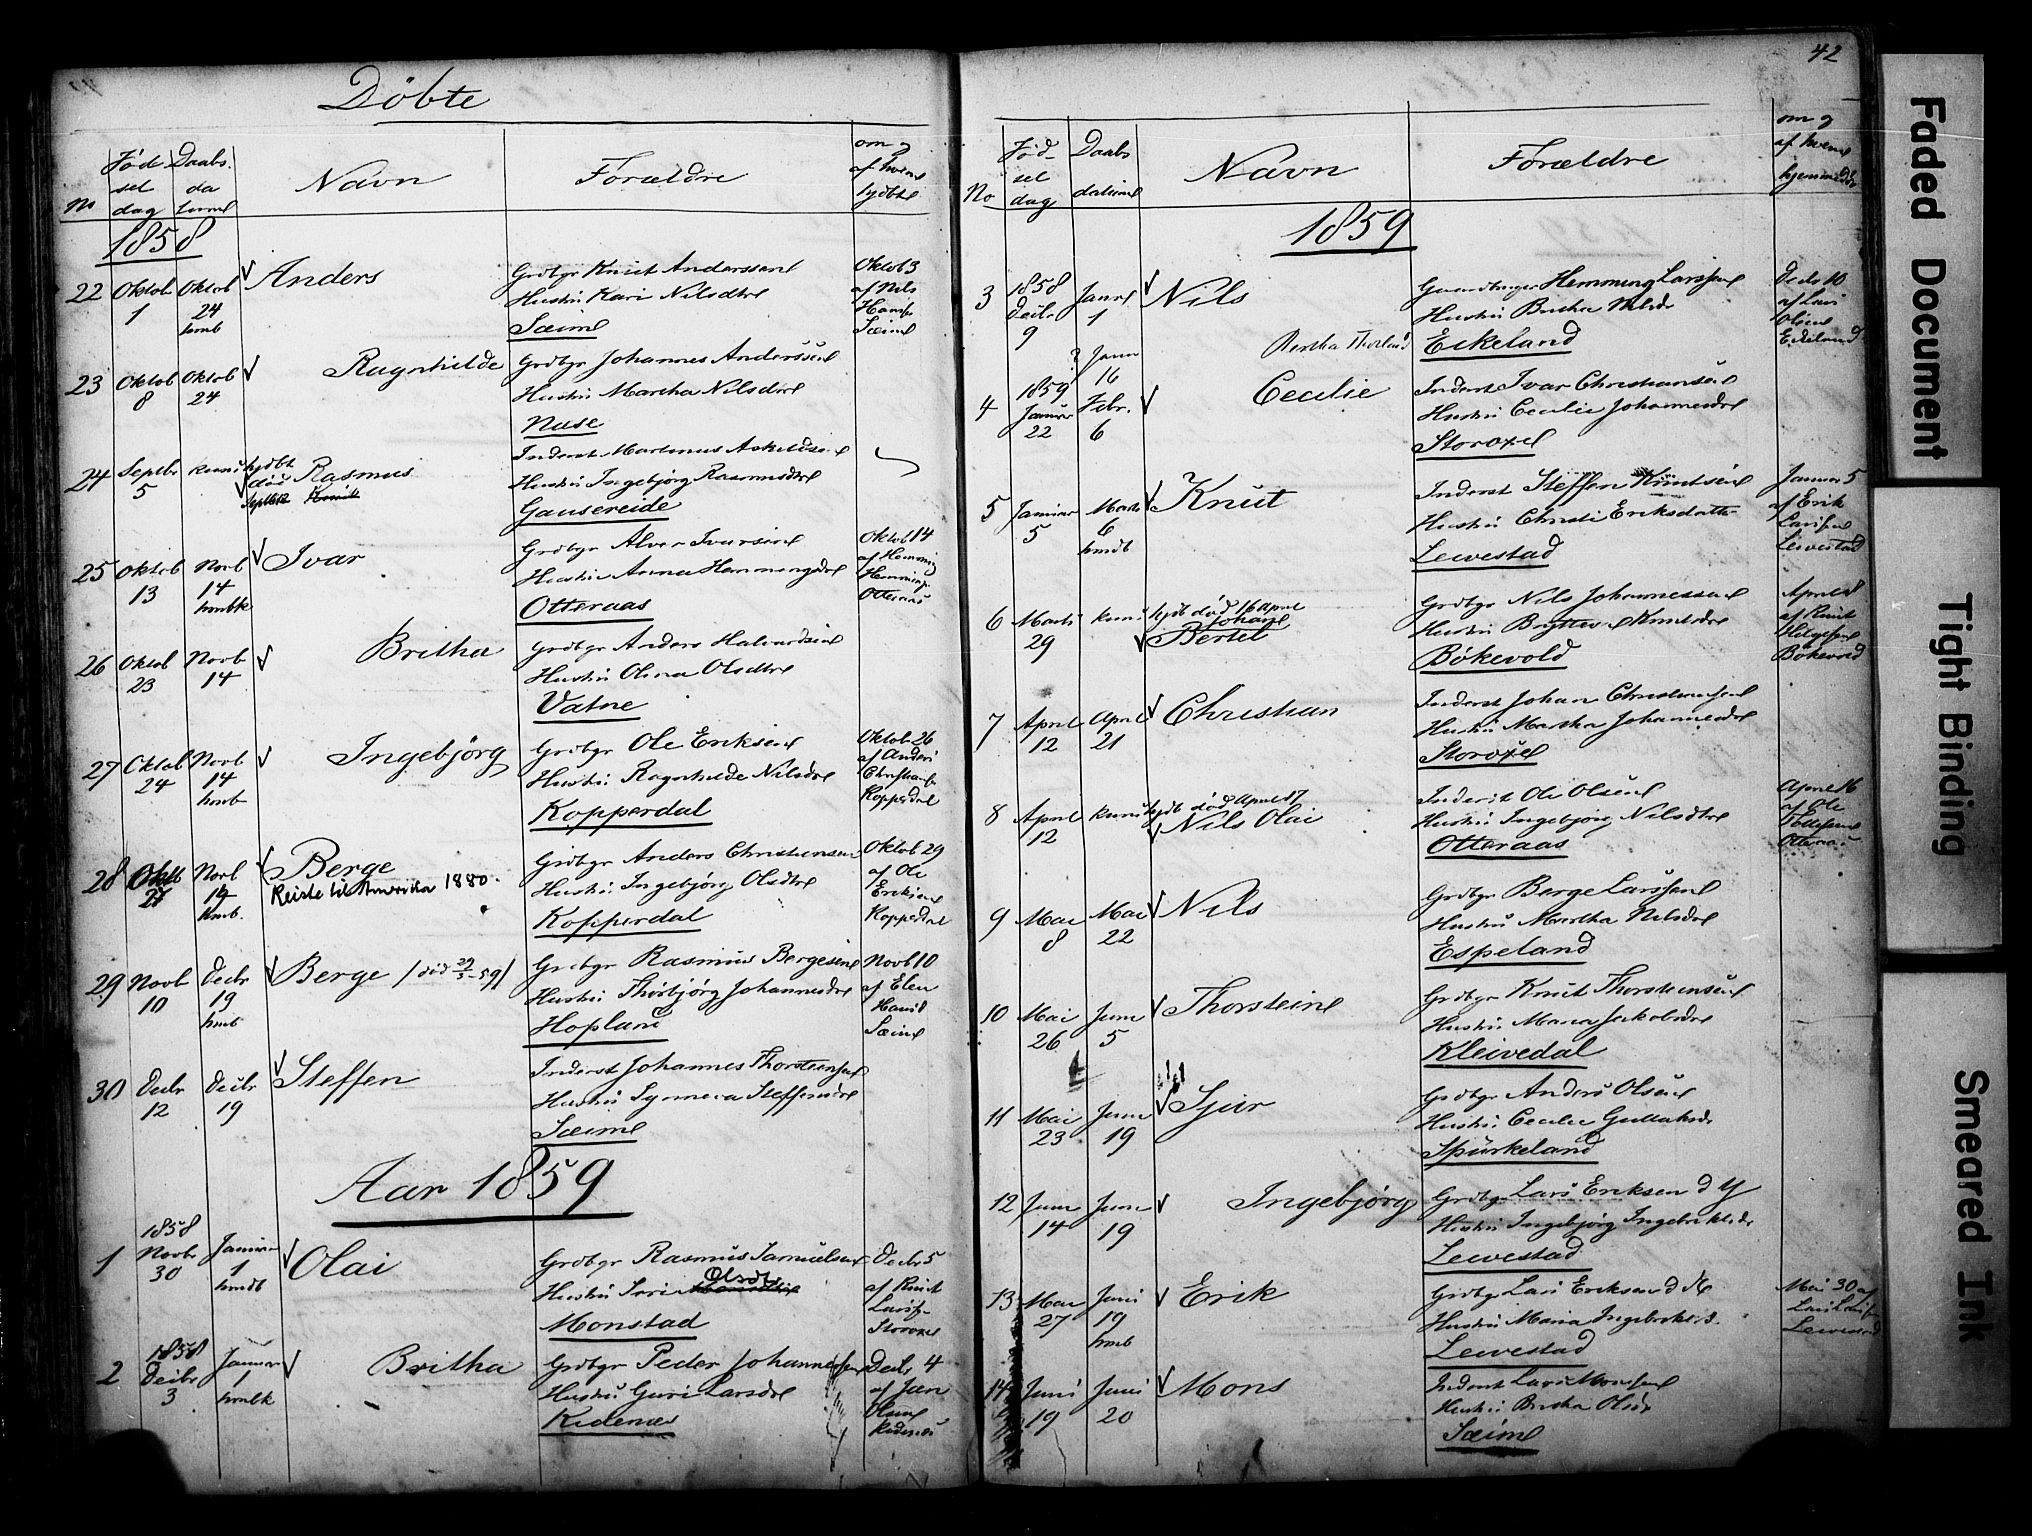 Döbte
No
Föd
sel
dag
Daabs.
da
tume
Navn
Forældre
om og
af hvem
hjdöbte
1858
22 Oktob 1 Oktob 24 hmb Anders
Grdbgr Knut Anderssen
Hustru Kari Nilsdtr
Sæim
Oktob 3
af Nils
Hansse
Sæim
23 Oktob 8 Oktob 24 Ragnhilde
Grdbgr Johannes Anderssen
Hustru Martha Nilsdtr
Nase
24 Septbr 5 kuns hjdbt död Septbr Rasmus
Inderst Martinus Askeldsen
Hustru Ingebjörg Rasmusdtr
Gausereide
25 Oktob 13 Novb 14 hmbk Ivar
Grdbgr Alver Ivarsen
Hustru Anna Hemmingsdtr
Otteraas
Oktob 14
af Hemming
Hemmings
Otteraas
26 Oktob 23 Novb 14 Britha
Grdbgr Anders Halvardsen
Hustru Olina Olsdtr
Vatne
27 Oktob 24 Novb 14 hmb Ingebjörg
Grdbgr Ole Eriksen
Hustru Ragnhilde Nilsdtr
Kopperdal
Oktob 26
af Anders
Christians
Kopperdal
28 Oktb 27 Novb 14 hmb. Berge
Reiste til Amerika 1880.
Grdbgr Anders Christensen
Hustru Ingebjörg Olsdtr
Kopperdal
Oktob 29
af Ole
Eriksen
Kopperdal
29 Novb 10 Decbr 19 hmb Berge / död 29/3-59/
Grdbgr Rasmus Bergesen
Hustru Thorbjörg Johannesdtr
Hopland
Novb 10
af Elen
Hansd
Sæim
30 Decbr 12 Decbr 19 Steffen
Inderst Johannes Thorsteinsen
Hustru Synneva Steffensdtr
Sæim
Aar 1859
1 1858 Novbr 30 Januar 1 hmdt Olai
Grdbgr Rasmus Samuelsen
Hustru Siri Olsdtr
Monstad
Decbr 5
af Knut
Larss
Storoxel
2 1858 Decbr 3 Januar 1 hmbk Britha
Grdbgr Peder Johannessen
Hustru Guri Larsdtr
Kidenes
Decbr 4
af Jan
Olsen
Kidenes
42
No
Föd-
sel
dag
Daabs
datum
Navn
Forældre
om og
af hvem
hjemmedöbt
1859
3 1858 Decbr 9 Janr 1 Nils
Gaardbruger Hemming Larssen
Hustru Britha Nilsdr
Eikeland
Decbr 10
af Lars
Olsen
Eikeland
? Janr 16
4 1859 Januar 22 Febr. 6 Cecilie
Inderst Ivar Christiansen
Hustru Cecilie Johannesdtr
Storoxel
5 Januar 5 Marts 6 hmdt Knut
Inderst Steffen Knutsen
Hustru Christi Eriksdatter
Leivestad
Januar 5
af Erik
Larssen
Leivestad
6 Marts 29 kuns hjdb död 16 April
Johan
Bertel
Grdbgr Nils Johannessen
Hustru Knutsdtr
Bökevold
April 8
af Knut
Helgesen
Bökevold
7 April 12 April 21 Christian
Inderst Johan Christiansen
Hustru Martha Johannesdtr
Storoxel
8 April 12 kuns hjdb död April 17
Nils Olai
Inderst Ole Olsen
Hustru Ingebjörg Nilsdtr
Otteraas
April 16
af Ole
Tollefsen
Otteraas
9 Mai 8 Mai 22 Nils
Grdbgr Berge Larssen
Hustru Martha Nilsdtr
Espeland
10 Mai 26 Juni 5 Thorstein
Grdbgr Knut Thorsteinsen
Hustru Maria Jakobsdtr
Kleivedal
11 Mai 23 Juni 19 Sjur
Grdbgr Anders Olsen
Hustru Cecilie Gullaksdr
Spurkeland
12 Juni 14 Juni 19 Ingebjörg
Grdbgr Lars Eriksen d Y
Hustru Ingebjörg Ingebrktsdr
Leivestad
13 Mai 27 Juni 19 hmb Erik
Grdbgr Lars Eriksen d
Hustru Maria Ingebrktsd.
Leivestad
Mai 30 af
Lars Larss
Leivestad
14 Juni 19 Juni 20 Mons
Inderst Lars Monsen
Hustru Britha Olsdr
Sæim
Faded Document
Tight Binding
Smeared Ink